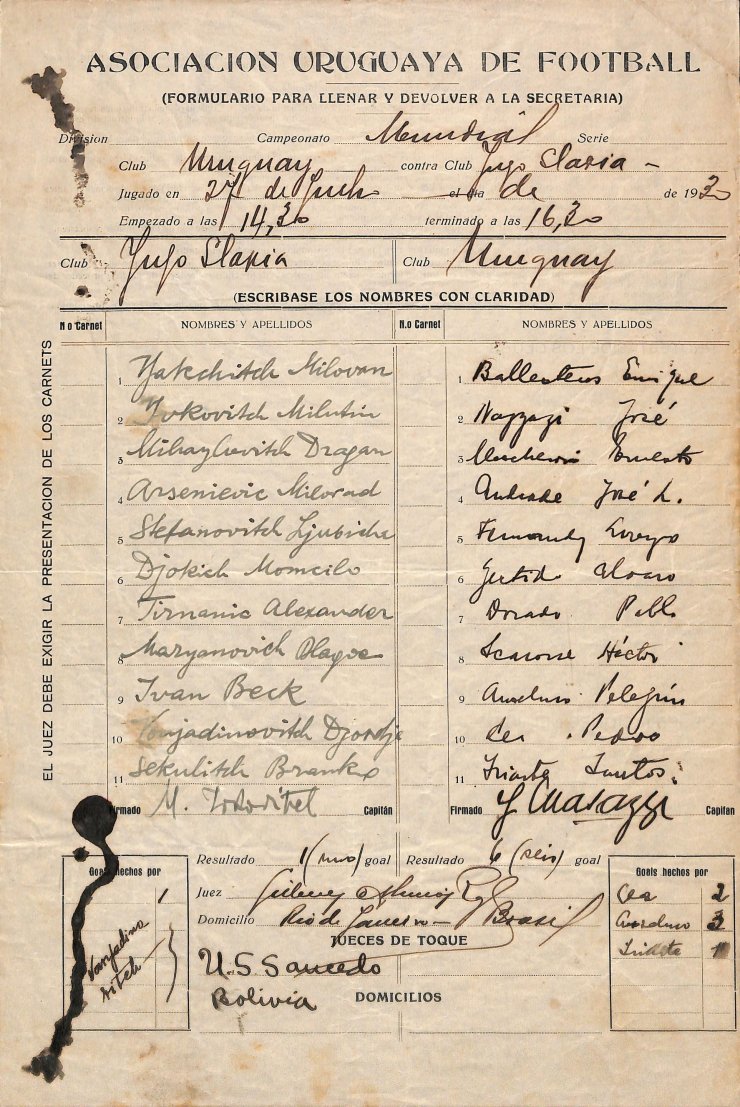 ASOCIACION URUGUAYA DE FOOTBALL
(FORMULARIO PARA LLENAR Y DEVOLVER A LA SECRETARIA)
Division Campeonato Mundial Serie
Club Uruguay contra Club Yugo Slavia -
Jugado en 27 de el dia de de 1930
Empezado a las 14,30 terminado a las 16,30
Club Yugo Slavia Club Uruguay
(ESCRIBASE LOS NOMBRES CON CLARIDAD)
N.o Carnet NOMBRES Y APELLIDOS N.o Carnet NOMBRES Y APELLIDOS
EL JUEZ DEBE EXIGIR LA PRESENTACION DE LOS CARNETS
1 Yakchitch Milovan 1 Ballesteros Enrique
2 Ivkovitch Milutin 2 Nazzazi José
3 Mihaylovitch Dragan 3 Mascheroni Ernesto
4 Arsenievic Milorad 4 Andrade José L.
5 Stefanovitch Ljubicha 5 Fernandez Lorenzo
6 Djokich Momcilo 6 Gestido Alvaro
7 Tirnanic Alexander 7 Dorado Pablo
8 Maryanovich Blagoe 8 Scarone Héctor
9 Ivan Beck 9 Anselmo Pelegrin
10 Voujadinovitch Djordje 10 Cea Pedro
11 Sekulitch Branko 11 Iriarte Santos
Firmado M. Capitán Firmado Capitan
Resultado 1 (uno) goal Resultado 6 (seis) goal
Goals hechos por 1
Juez Gilberto
Domicilio Rio de Janeiro - Brasil
JUECES DE TOQUE
U.S. Saucedo
Bolivia DOMICILIOS
Goals hechos por
Cea 2
Anselmo 3
Iriarte 1